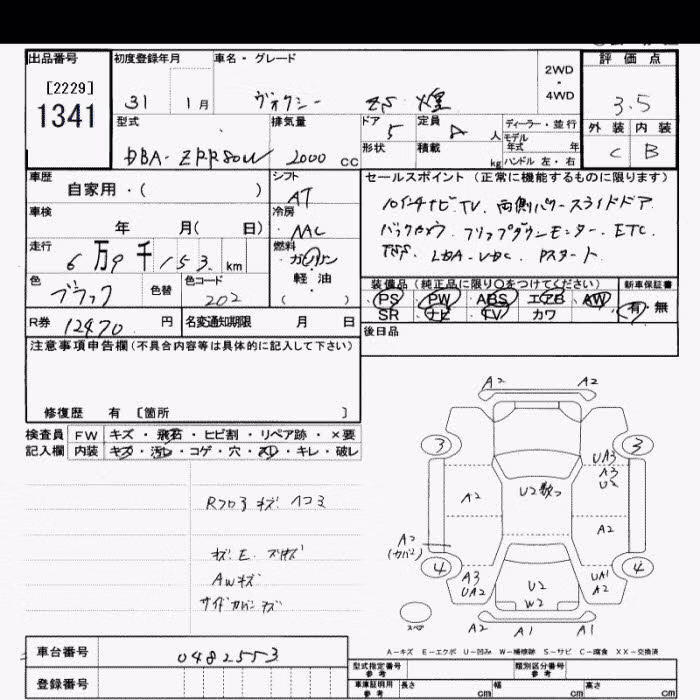 出品番号 初度登録年月 車名・グレード 評価点
[2229]
1341
31 1月 ヴォクシー ZS 煌
2WD・4WD
3.5
型式 排気量 ドア 定員 ディーラー・並行 外装 内装
DBA-ZRR80W 2000 CC 5 8 人 モデル年式 年
形状 積載 kg ハンドル 左・右
C B
車歴 シフト セールスポイント(正常に機能するものに限ります)
自家用・( ) AT
10インチナビ.TV. 両側パワースライドドア
車検 冷房
年 月( 日) AAC
バックカメラ. フリップダウンモニター. ETC.
走行 燃料
6万9千153km ガソリン・軽油・( )
LDA-VDC. Pスタート
色 色替 色コード
ブラック 202
装備品(純正品に限り○をつけてください) 新車保証書
PS PW ABS エアB AW
SR ナビ TV カワ
有・無
R券 12470円 名変通知期限 月 日
後日品
注意事項申告欄(不具合内容等は具体的に記入して下さい)
修復歴 有 [箇所 ]
検査員 FW キズ・飛石・ヒビ割・リペア跡・×要
記入欄 内装 キズ・汚レ・コゲ・穴・スレ・キレ・破レ
Rフロア キズ ヘコミ
キズ. E. スリキズ
AWキズ
サイドカバーキズ
A2 A2
3 3
UA3
A3
U2
A2 U2数つ
A2
A2
(カバー)
4 4
A3
UA2
UA1
A2
U2
W2
スペア
A2 A1 A1
A-キズ E-エクボ U-凹み W-補修跡 S-サビ C-腐食 XX-交換済
車台番号 0482553
型式指定番号 参考 類別区分番号 参考
登録番号
車庫証明用 参考 長さ cm 幅 cm 高さ cm